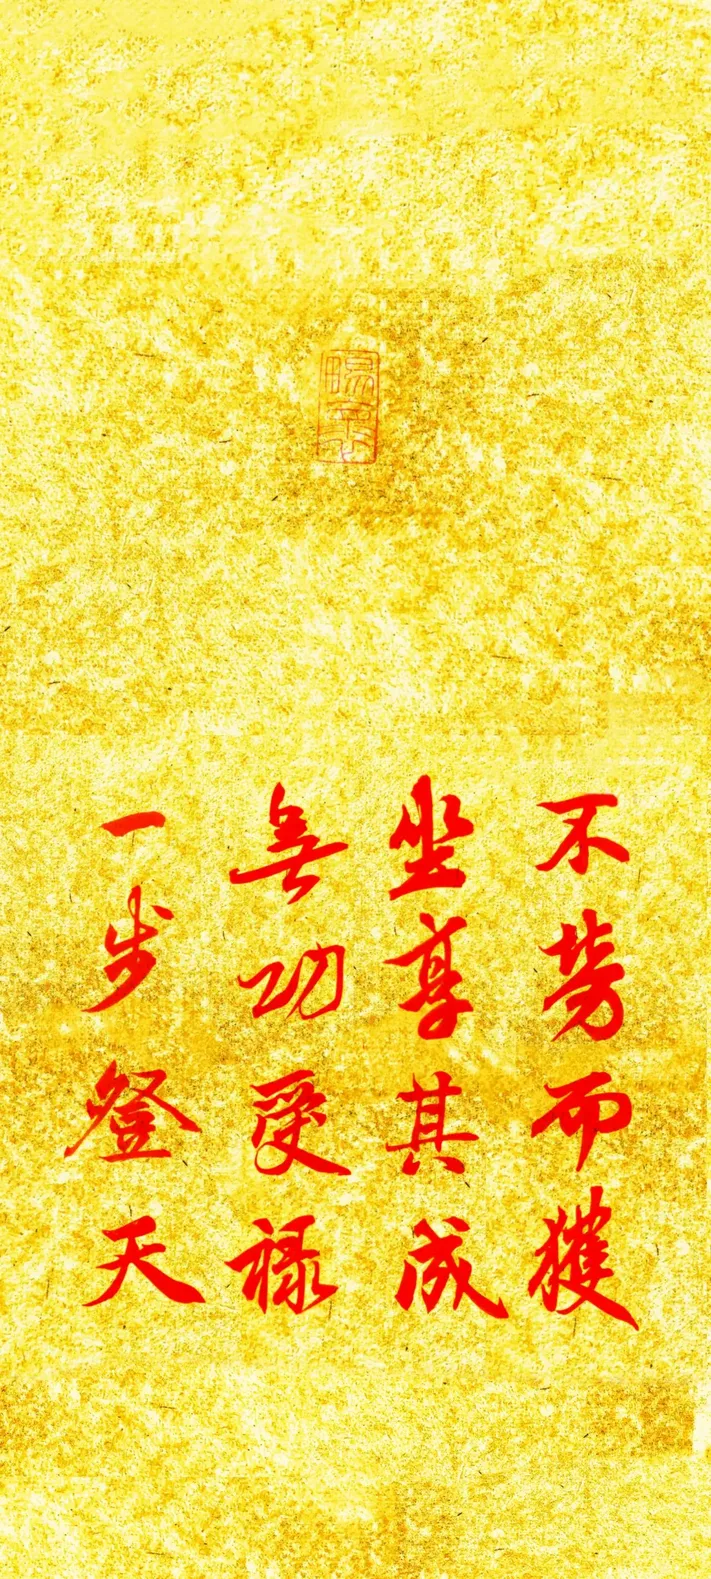 不劳而獲
坐享其成
無功受禄
一步登天